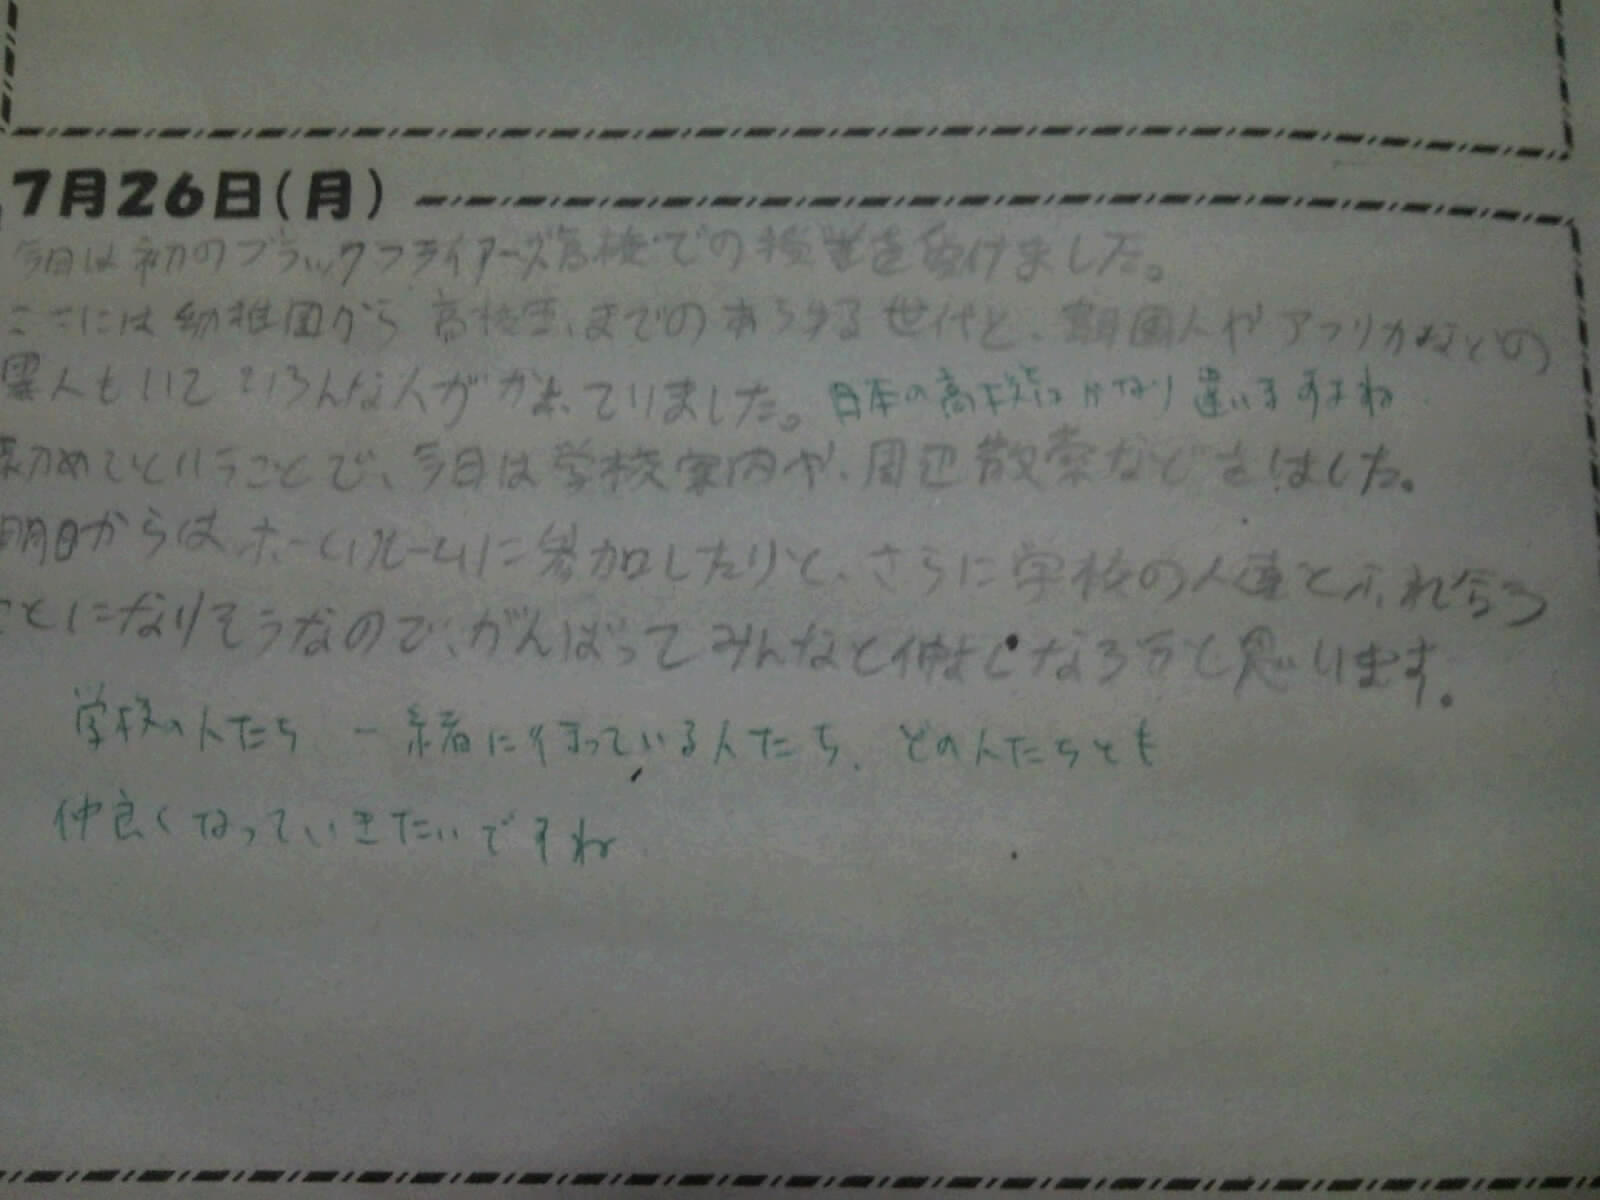 7月26日(月)
今日は初のブラックフライアーズ高校での授業を受けました。
ここには幼稚園から高校生、までのあらゆる世代と、韓国人やアフリカなどの
黒人もいていろんな人がかよっていました。日本の高校とはかなり違いますよね
初めてということで、今日は学校案内や、周辺散策などをしました。
明日からは、ホームルームに参加したりと、さらに学校の人達とふれ合う
ことになりそうなので、がんばってみんなと仲よくなろうと思います。
学校の人たち 一緒に行っている人たち、どの人たちとも
仲良くなっていきたいですね